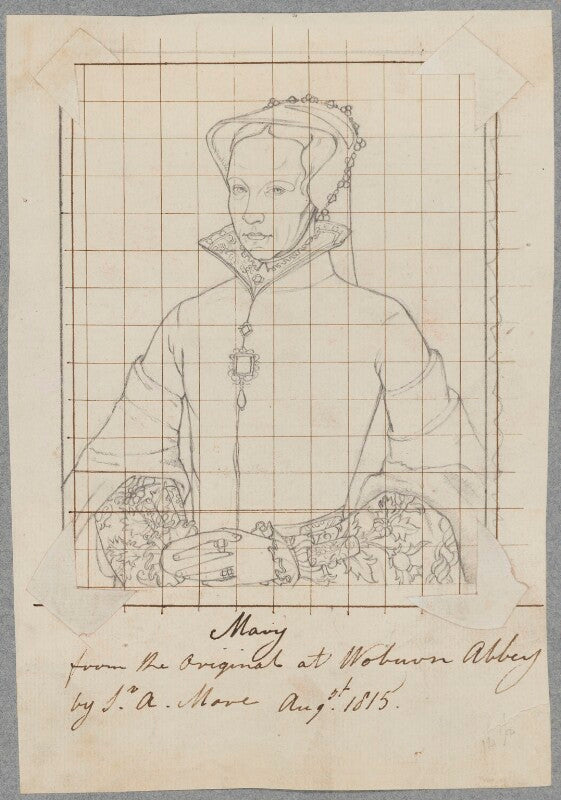 Mary
from the Original at Woburn Abbey
by Sr. A. More Augst. 1815.